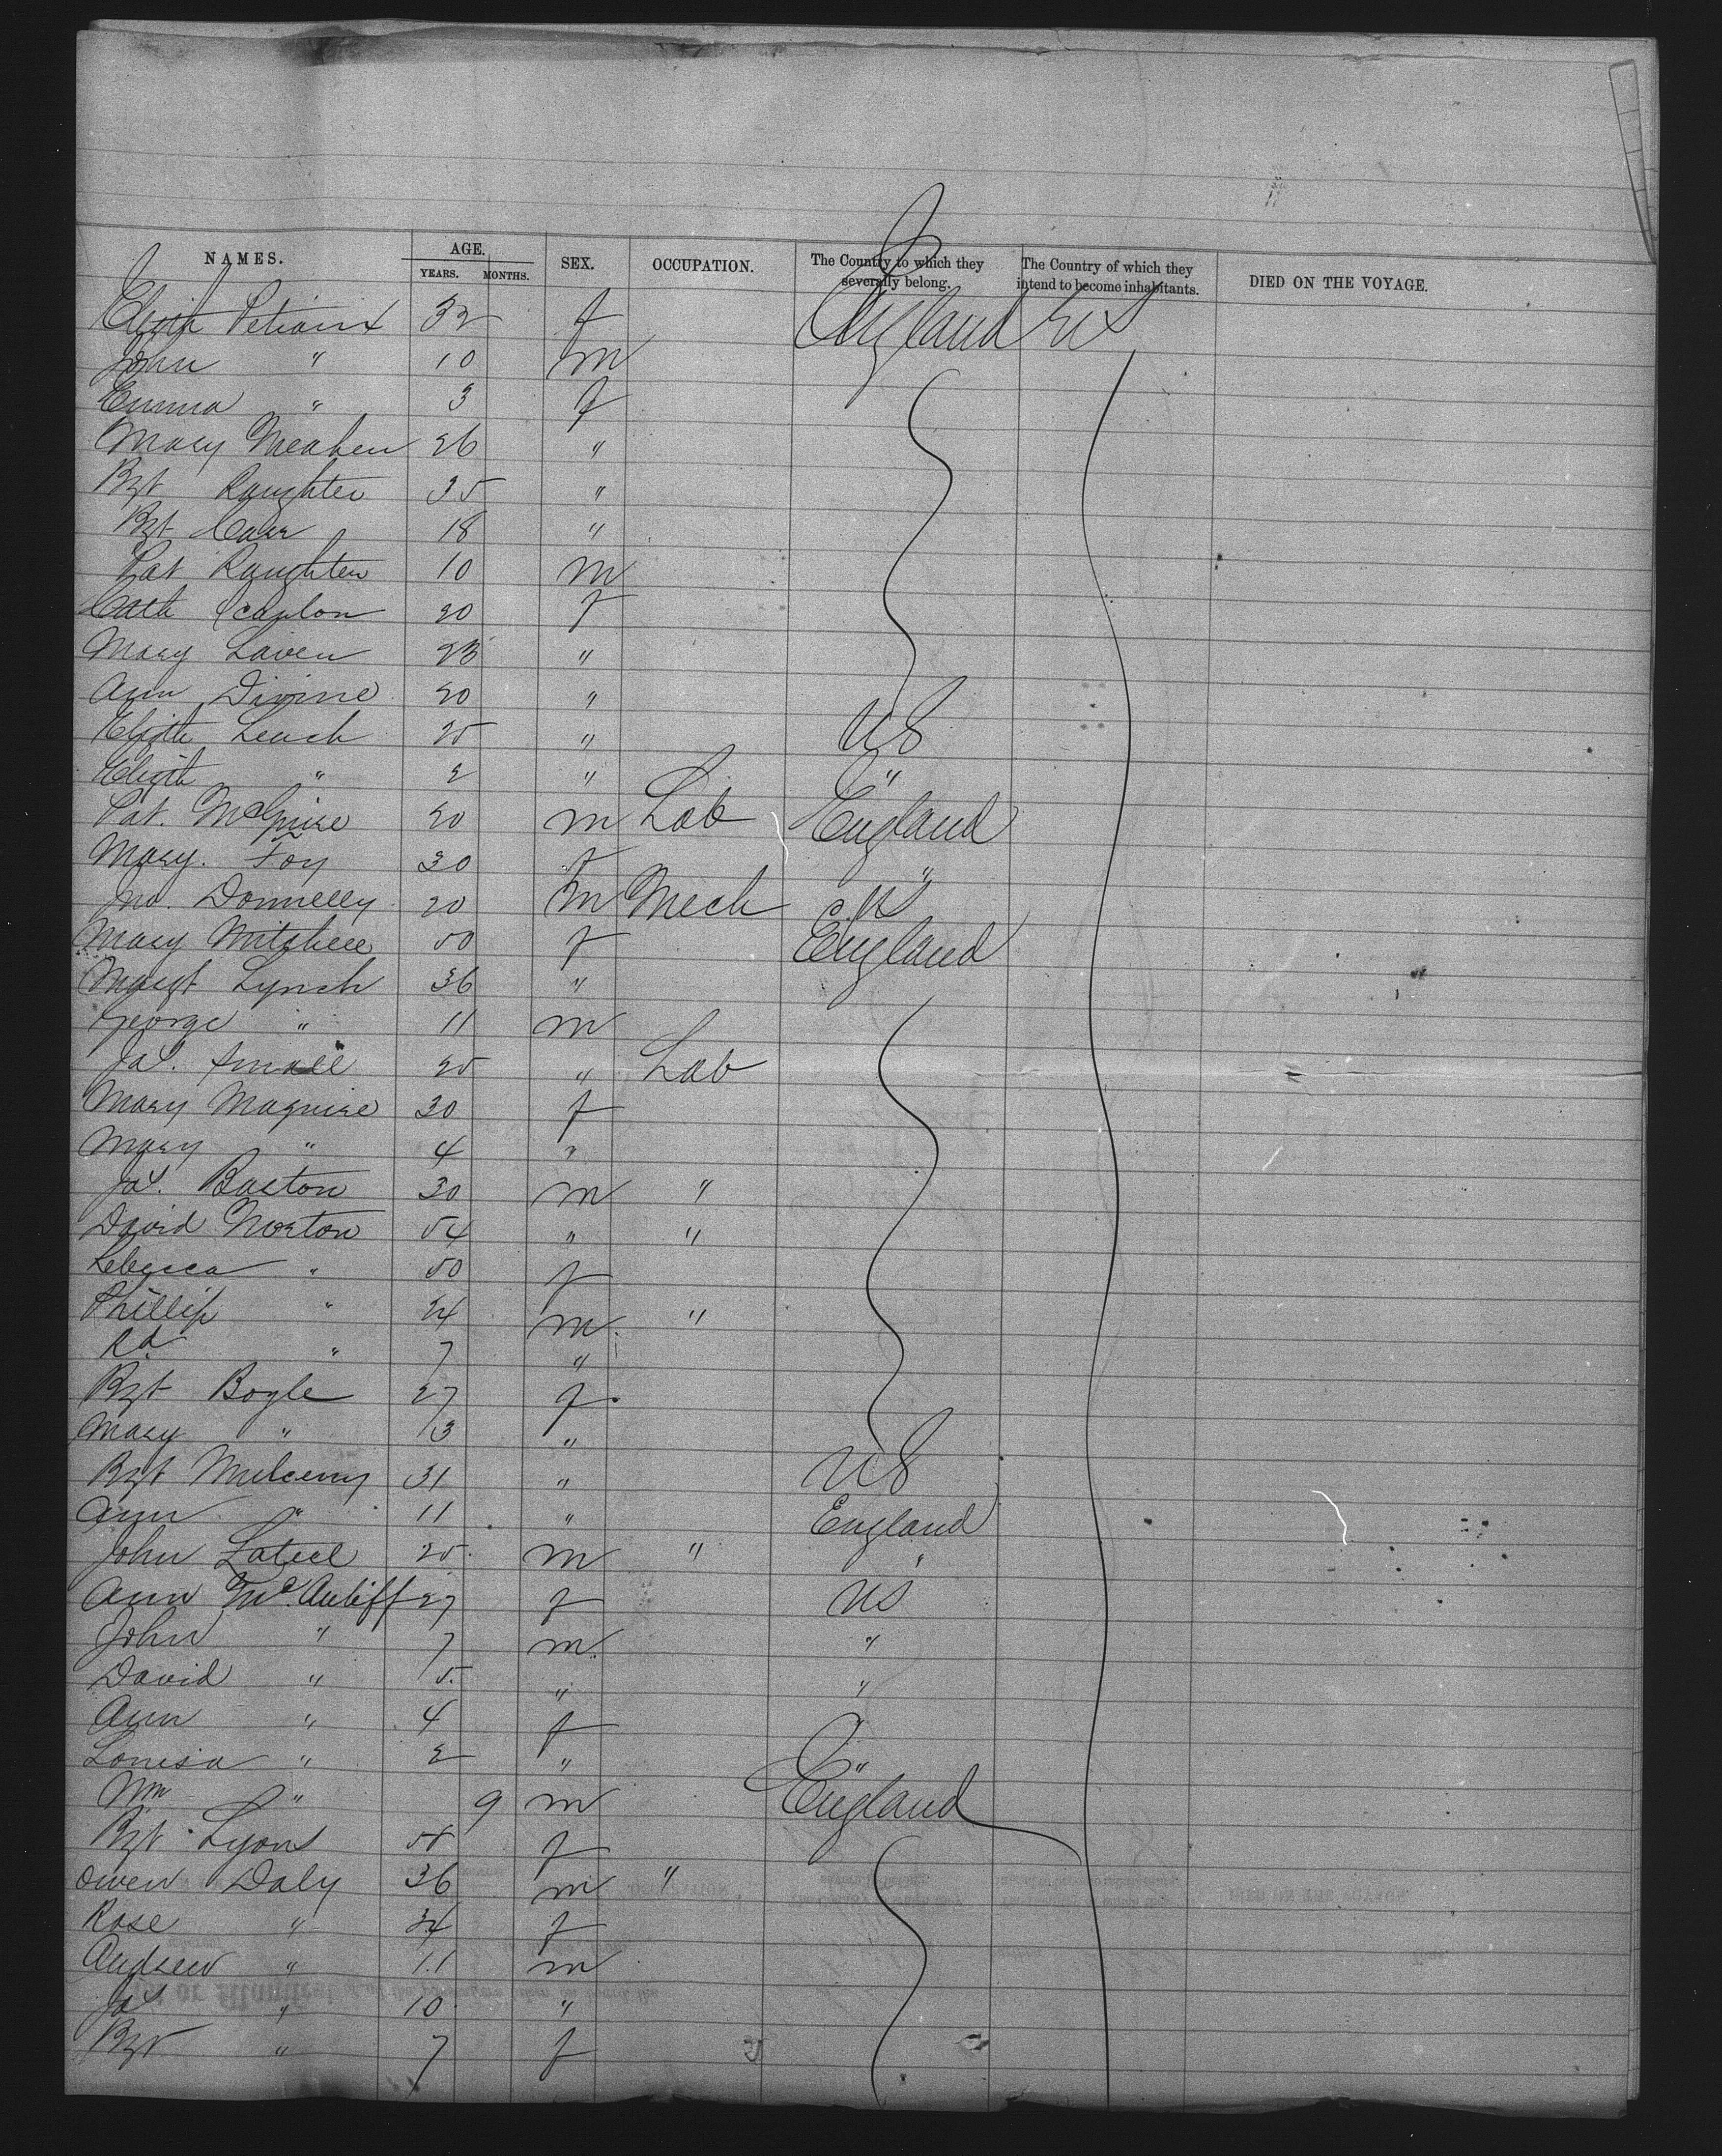 NAMES. AGE. YEARS. MONTHS. SEX. OCCUPATION. The Country to which they severally belong. The Country of which they intend to become inhabitants. DIED ON THE VOYAGE.
Elizth 32 f England US
John " 10 m
Emma " 3 f
Mary Meahen 26 "
Bgt Raughter 35 "
Bgt Carr 18 "
Pat Raughter 10 m
Cath Scanlon 20 f
Mary Laven 23 "
Ann Divine 20 "
Elizth Leach 25 " US
Elizth " 2 " "
Pat. McGuire 20 m Lab England
Mary. Foy 30 f "
Jno. Donnelly 20 m Mech US
Mary Mitchell 50 f England
Margt Lynch 36 "
George " 11 m
Jas. Small 25 " Lab
Mary Maguire 30 f
Mary " 4 "
Jas. Barton 30 m "
David Norton 54 " "
Rebecca " 50 f
Phillip " 24 m "
Rd " 7 "
Bgt Boyle 27 f
Mary " 13 "
Bgt 31 " US
Ann " 11 " England
John 25 m " "
Ann McAuliff 27 f US
John " 7 m "
David " 5 " "
Ann " 4 f "
Louisa " 2 " "
Wm " 9 m England
Bgt Lyons f
Owen Daly 36 m "
Rose " 34 f
Andrew " 11 m
Jas " 10 "
Bgt " 7 f